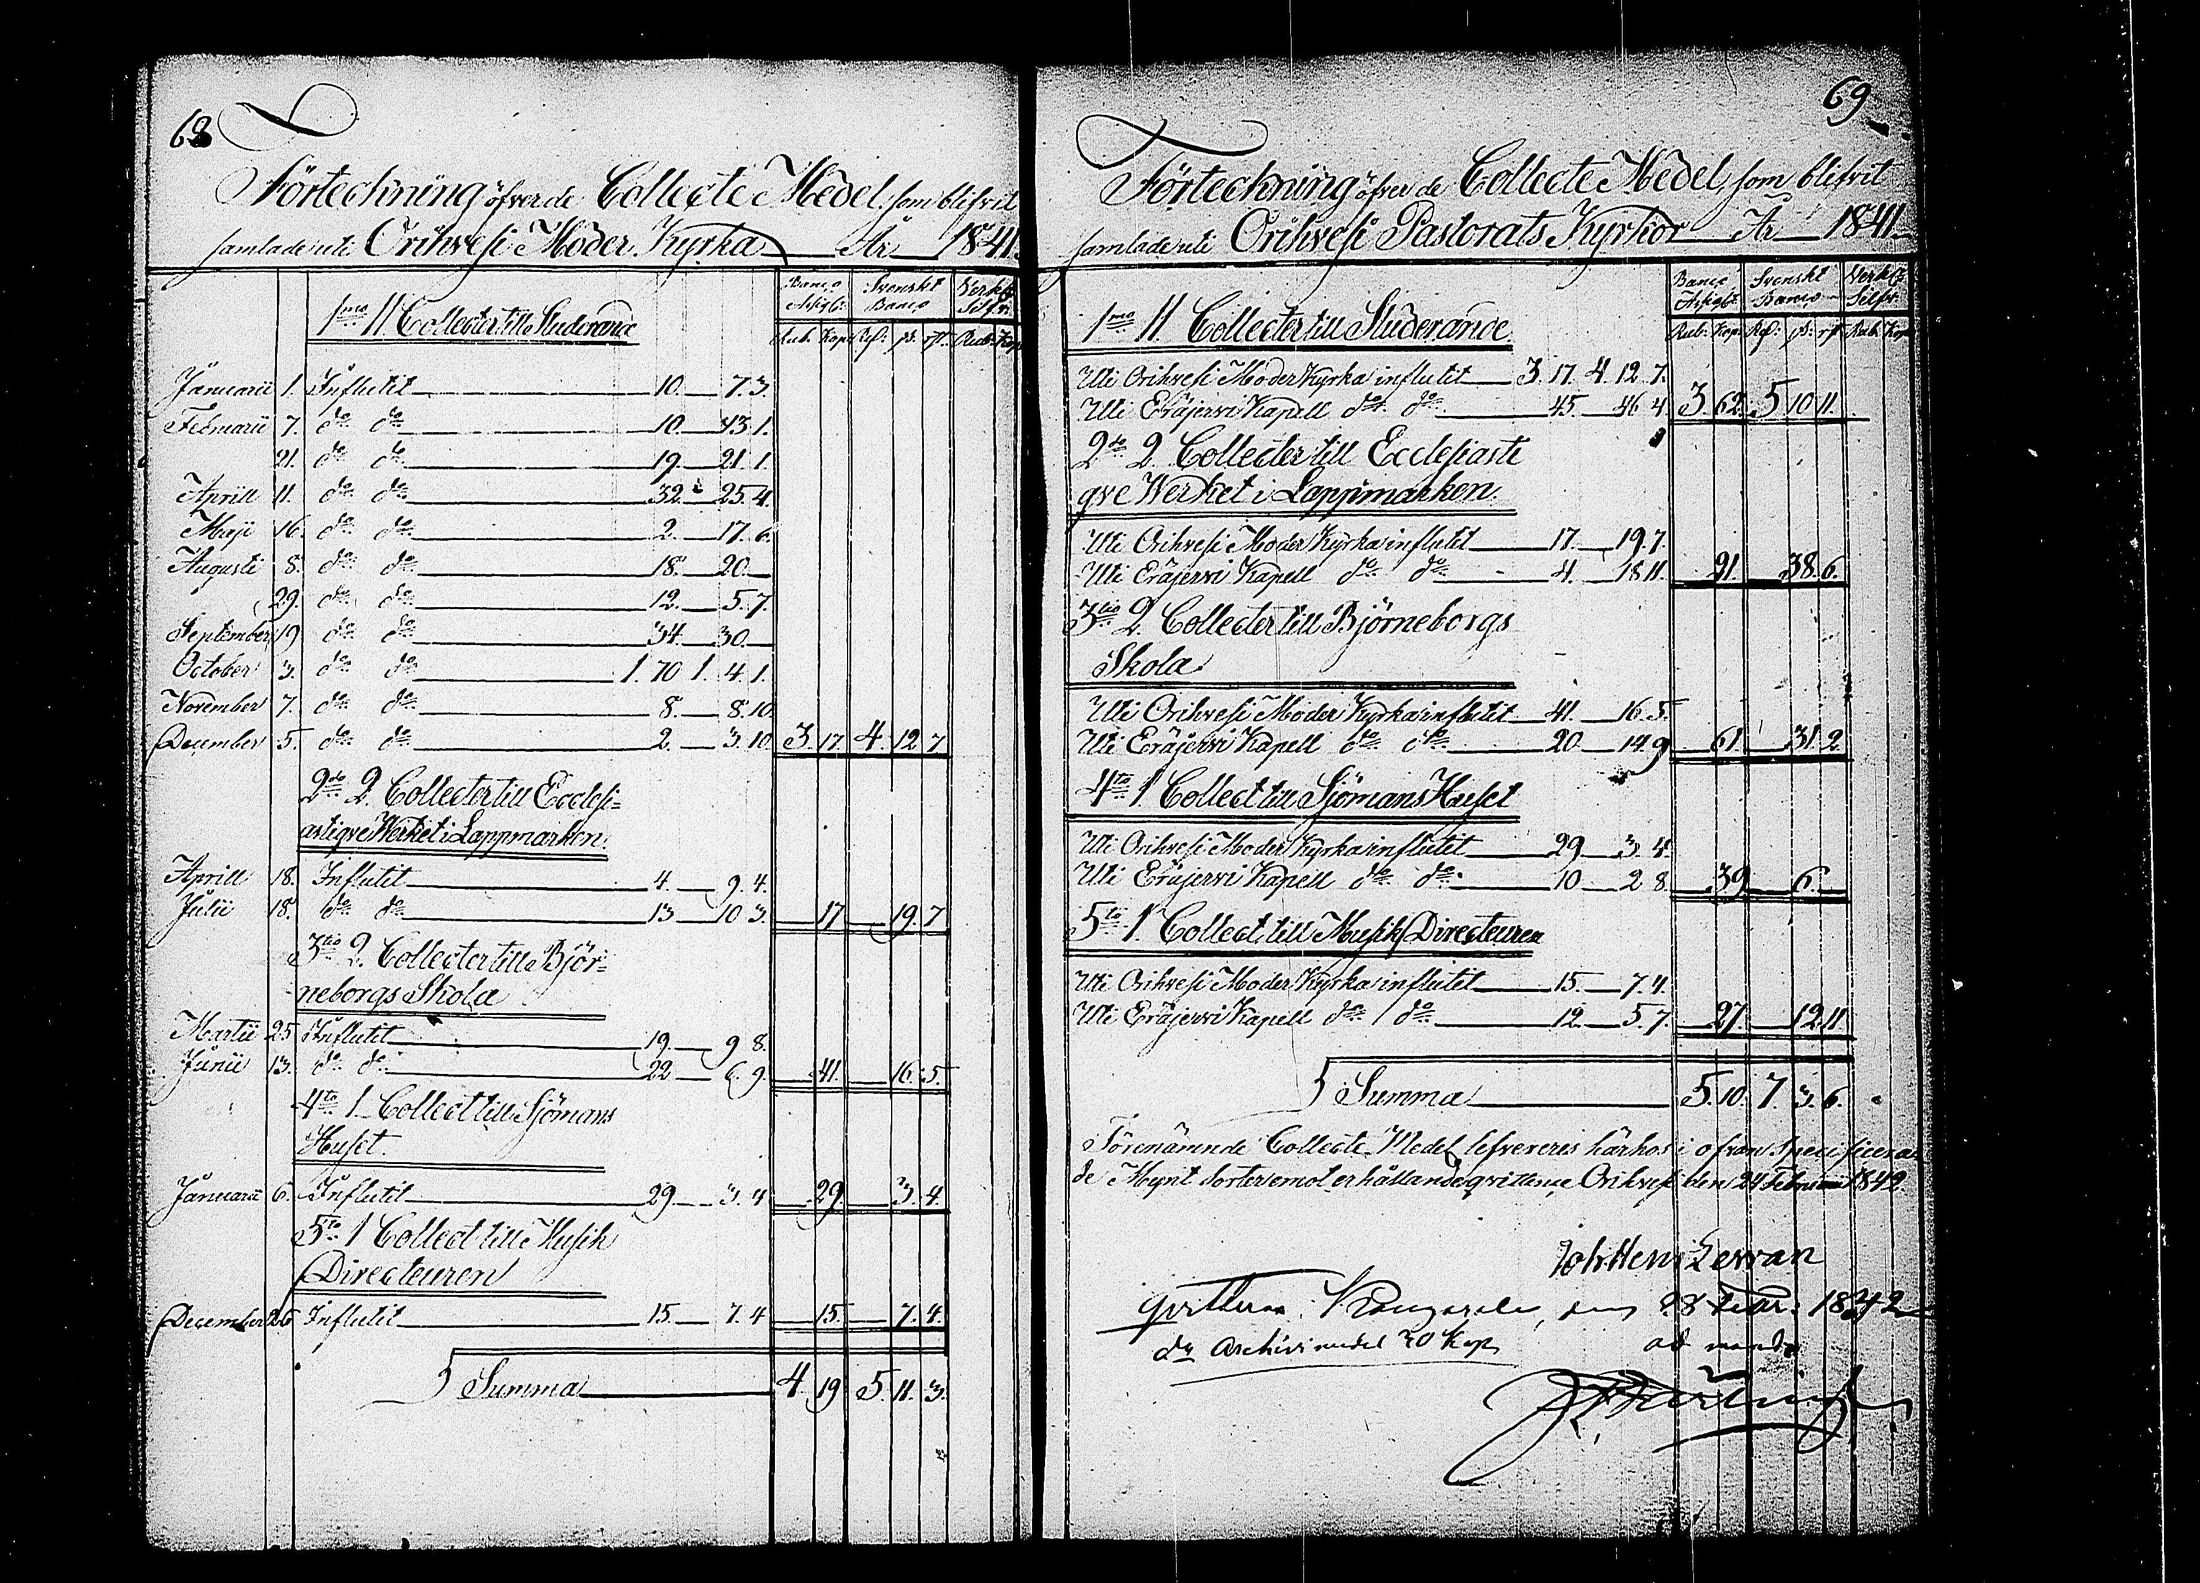 68
Förteckning öfver de Collecte Medel som blifvit
samlade uti Orihvesi Moder Kyrka År 1841.
Banco Assign: Svenskt Banco Verk: Silfv:
1mo 11 Collecter till Studerande
Rub. Kop: Rd: sk: rst. Rub. Kop
Januarii 1. Influtit 10. 7. 3.
Februarii 7. do do 10. 43. 1.
21. do do 19. 21. 1.
Aprill 11. do do 32. 25. 4.
Maji 16. do do 2. 17. 6.
Augusti 8. do do 18. 20.
29. do do 12. 5. 7.
September 19. do do 34. 30.
October 3. do do 1. 70 1. 4. 1.
November 7. do do 8. 8. 10.
December 5. do do 2. 3. 10. 3. 17. 4. 12. 7
2do 2. Collecter till Ecclesi=
astiqve Werket i Lappmarken.
Aprill 18. Influtit 4. 9. 4.
Julii 18. do do 13 10 3. 17 19. 7
3tio 2. Collecter till Björ=
neborgs Skola
Martii 25 Influtit 19. 9 8.
Junii 13. do do 22 6. 9. 41. 16. 5.
4to 1 Collect till Sjömans
Huset.
Januarii 6. Influtit 29. 3. 4 29. 3. 4.
5to 1 Collect till Musik
Directeuren
December 26 Influtit 15. 7. 4 15. 7. 4.
Summa 4. 19 5. 11. 3.
69
Förteckning öfver de Collecte Medel, som blifvit
samlade uti Orihvesi Pastorats Kyrkor År 1841.
Banco Assign: Svenskt Banco Verk: Silfv:
1mo 11. Collecter till Studerande.
Rub. Kop: Rd: sk: rst Rub. Kop
Uti Orihvesi Moder Kyrka influtit 3. 17. 4. 12. 7.
Uti Eräjervi Kapell do do 45. 46 4. 3. 62. 5 10 11.
2do 2. Collecter till Ecclesiasti
qve Werket i Lappmarken.
Uti Orihvesi Moder Kyrka influtit 17. 19. 7.
Uti Eräjervi Kapell do do 4. 18 11. 21. 38. 6.
3tio 2. Collecter till Björneborgs
Skola
Uti Orihvesi Moder Kyrka influtit 41. 16. 5.
Uti Eräjervi Kapell do do 20. 14. 9 61. 31. 2
4to 1 Collect till Sjömans Huset
Uti Orihvesi Moder Kyrka influtit 29 3. 4.
Uti Eräjervi Kapell do do 10 2 8. 39 6
5to 1. Collect till Musik Directeuren
Uti Orihvesi Moder Kyrka influtit 15. 7. 4.
Uti Eräjervi Kapell do do 12. 5. 7. 27. 12 11
Summa 5. 10. 7. 3. 6.
Förenämnde Collecte Medel lefvereres härhos i ofvan specificera
de Mynt Sorter emot erhållande qvittence Orihvesi den 24 Februarii 1842.
Joh: Henr:
qvitteras, den 28 Febr: 1842
do Archivi medel 20 Kop
ad mand: